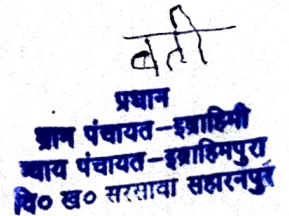 वती
प्रधान
ग्राम पंचायत-इब्राहिमी
न्याय पंचायत-इब्राहिमपुरा
वि० ख० सरसावा सहारनपुर